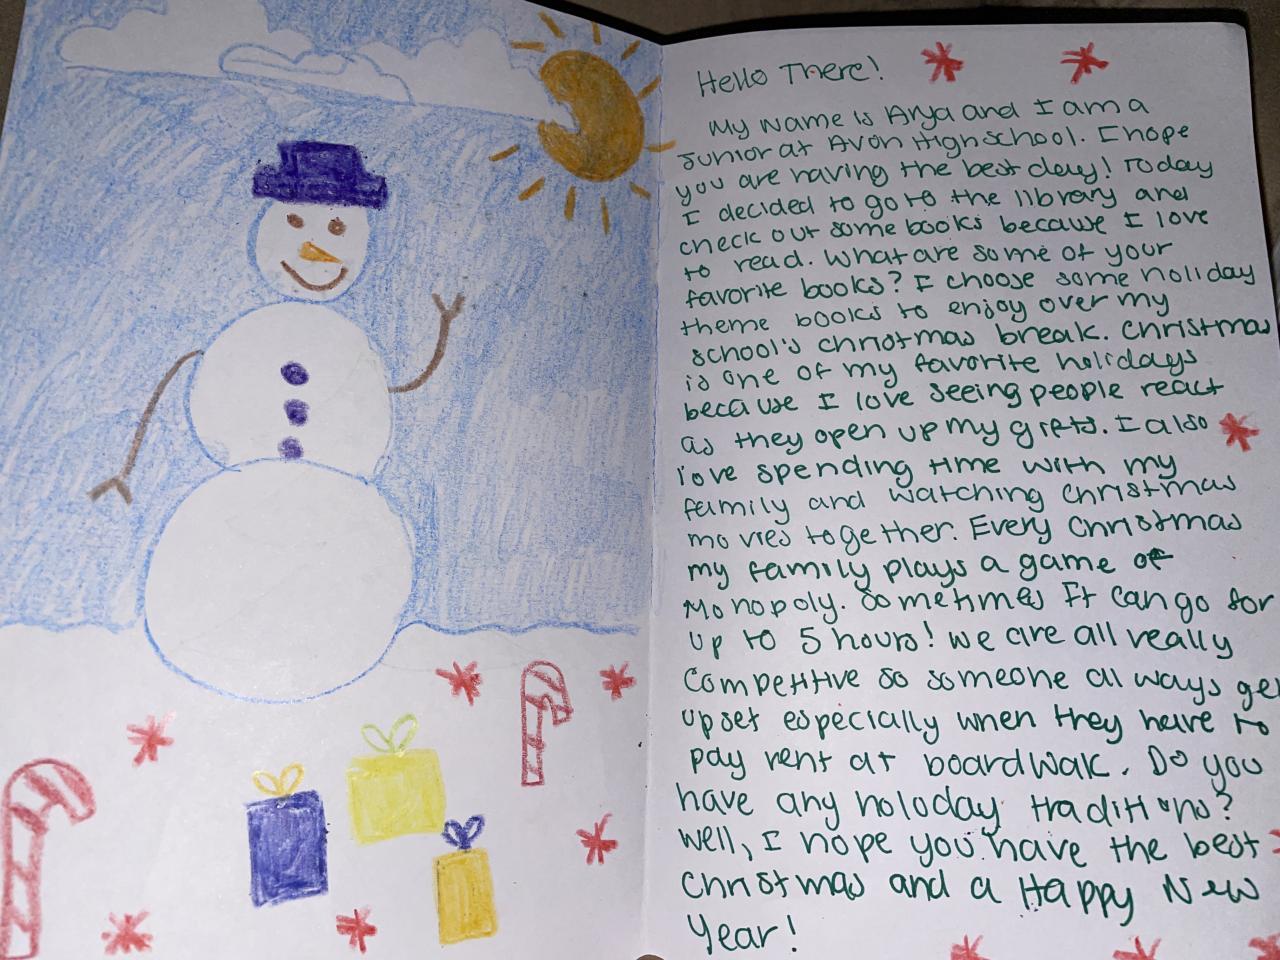 Hello There!
My name is Arya and I am a
junior at Avon High school. I hope
you are having the best day! Today
I decided to go to the library and
check out some books because I love
to read. What are some of your
favorite books? I choose some holiday
theme books to enjoy over my
school's christmas break. Christmas
is one of my favorite holidays
because I love seeing people react
as they open up my gifts. I also
love spending time with my
family and watching Christmas
movies together. Every Christmas
my family plays a game of
Monopoly. Sometimes It can go for
up to 5 hours! We are all really
competitive so someone always get
upset especially when they have to
pay rent at boardwalk. Do you
have any holoday traditions?
Well, I hope you have the best
christmas and a Happy New
Year!